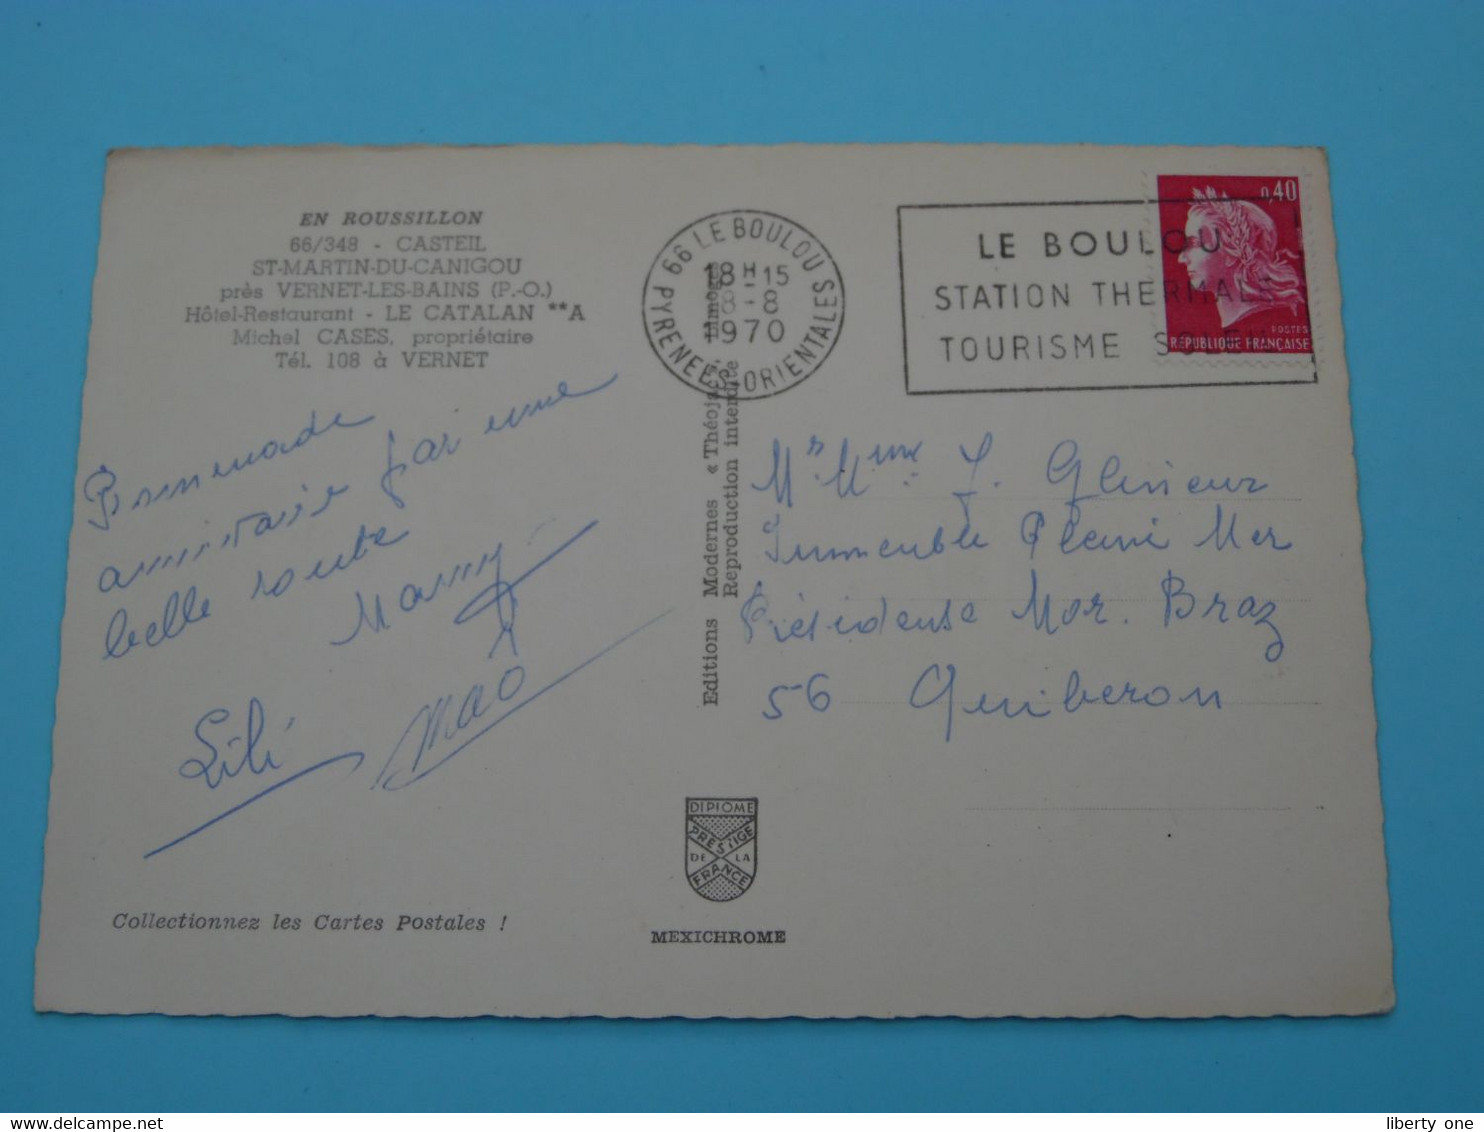 EN ROUSSILLON
66/348 - CASTEIL
ST-MARTIN-DU-CANIGOU
près VERNET-LES-BAINS (P.-O.)
Hôtel-Restaurant - LE CATALAN **A
Michel CASES, propriétaire
Tél. 108 à VERNET
Promenade
par une
belle route
Mamy
Lili
Collectionnez les Cartes Postales !
66 LE BOULOU
18 H 15
8 - 8
1970
PYRENEES ORIENTALES
Editions Modernes « Théojac », Limoges
Reproduction interdite
DIPLOME
PRESTIGE
DE LA
FRANCE
MEXICHROME
LE BOULOU
STATION THERMALE
TOURISME SOLEIL
0,40
POSTES
REPUBLIQUE FRANÇAISE
Mr Mme J. Glineur
Immeuble Pleine Mer
Résidense Mor. Braz
56 Quiberon
liberty one